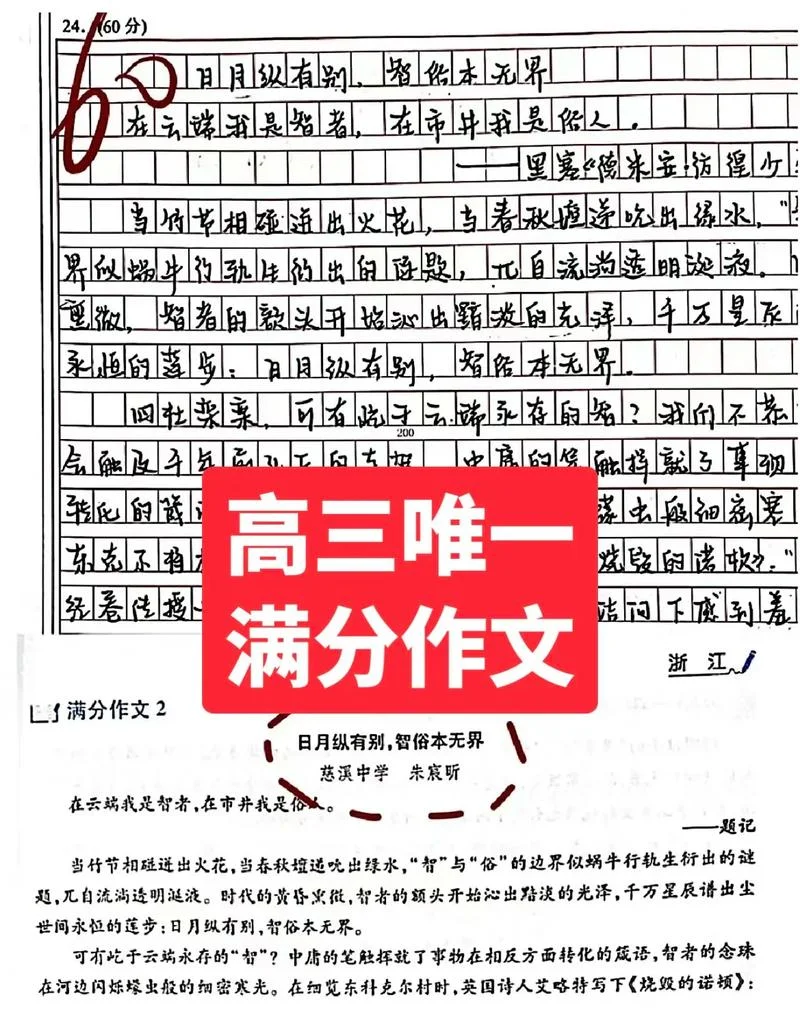 24. (60分)
60
日月纵有别，智俗本无界
在云端我是智者，在市井我是俗人。
——黑塞《德米安：彷徨少
当竹节相碰迸出火花，当春秋壇递吮出绿水，"
界似蜗牛行轨生衍出的谜题，兀自流淌透明涎液。
黑微，智者的额头开始沁出黯淡的光泽，千万星辰
永恒的莲步：日月纵有别，智俗本无界。
四柱栾栾，可有屹于云端永存的智？我们不恭
200
会触及千年
中庸的笔触挥就了事物
转化的箴
蠓虫般细密寒
东克
烧毁的诺顿》："
经卷传授
诘问下感到羞
高三唯一
满分作文
浙江
满分作文2
日月纵有别，智俗本无界
慈溪中学 朱宸昕
在云端我是智者，在市井我是俗人。
——题记
当竹节相碰迸出火花，当春秋壇递吮出绿水，“智”与“俗”的边界似蜗牛行轨生衍出的谜
题，兀自流淌透明涎液。时代的黄昏黑微，智者的额头开始沁出黯淡的光泽，千万星辰谱出尘
世间永恒的莲步：日月纵有别，智俗本无界。
可有屹于云端永存的“智”？中庸的笔触挥就了事物在相反方面转化的箴语，智者的念珠
在河边闪烁蠓虫般的细密寒光。在细览东科克尔村时，英国诗人艾略特写下《烧毁的诺顿》：